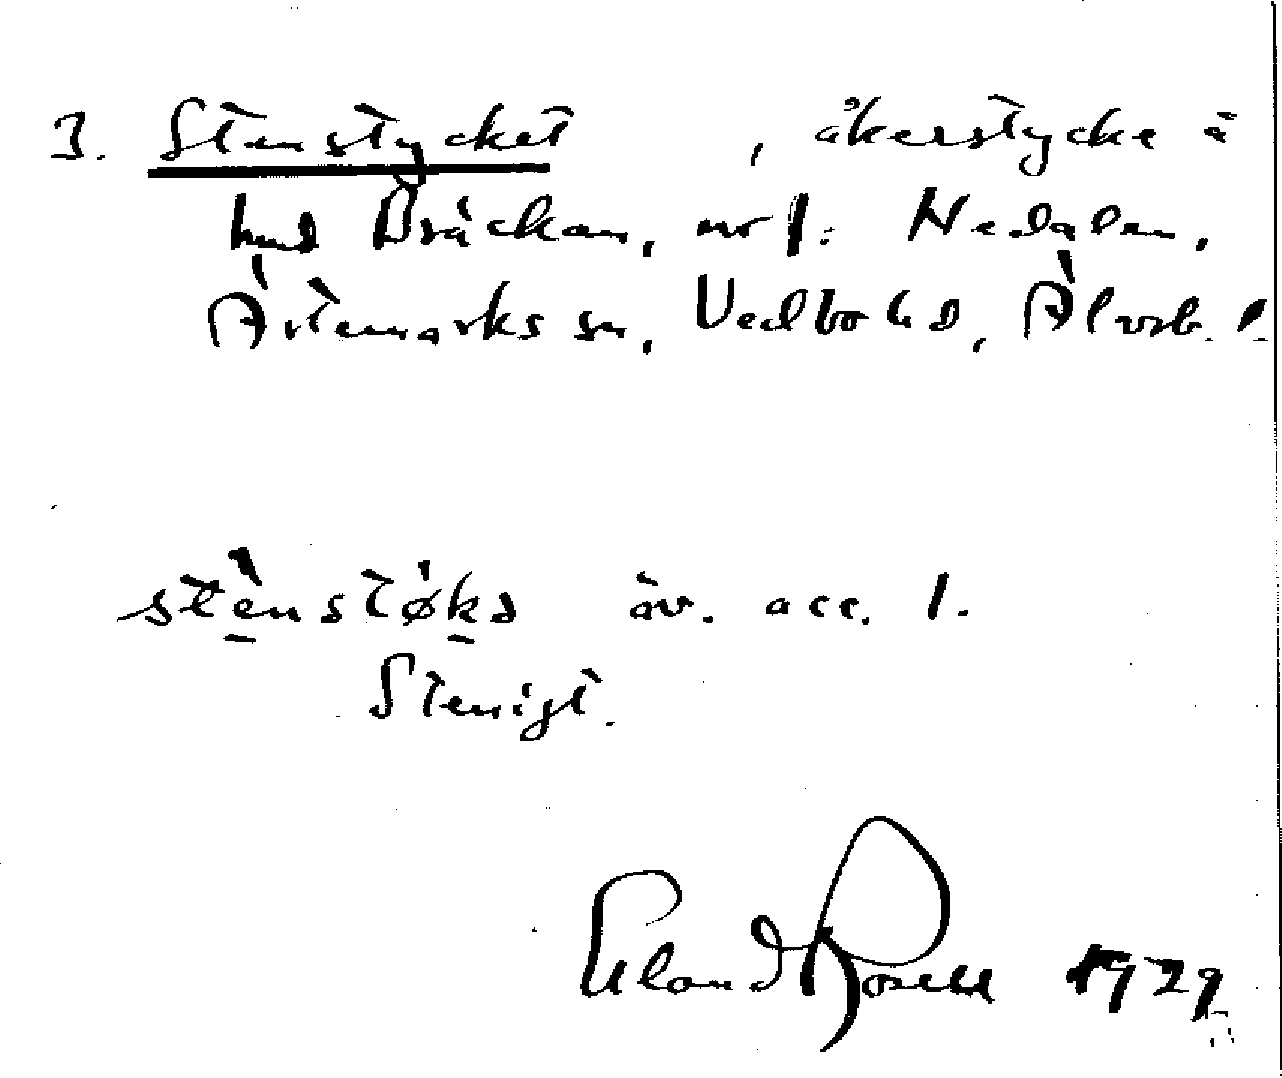 3. Stenstycket , åkerstycke å
hmd Bräckan, nr 1. Nedalen,
Ärtemarks sn, Vedbo hd, Älvsb. l.
stènstøks äv. acc. 1.
Stenigt.
Erland Rosell 1929